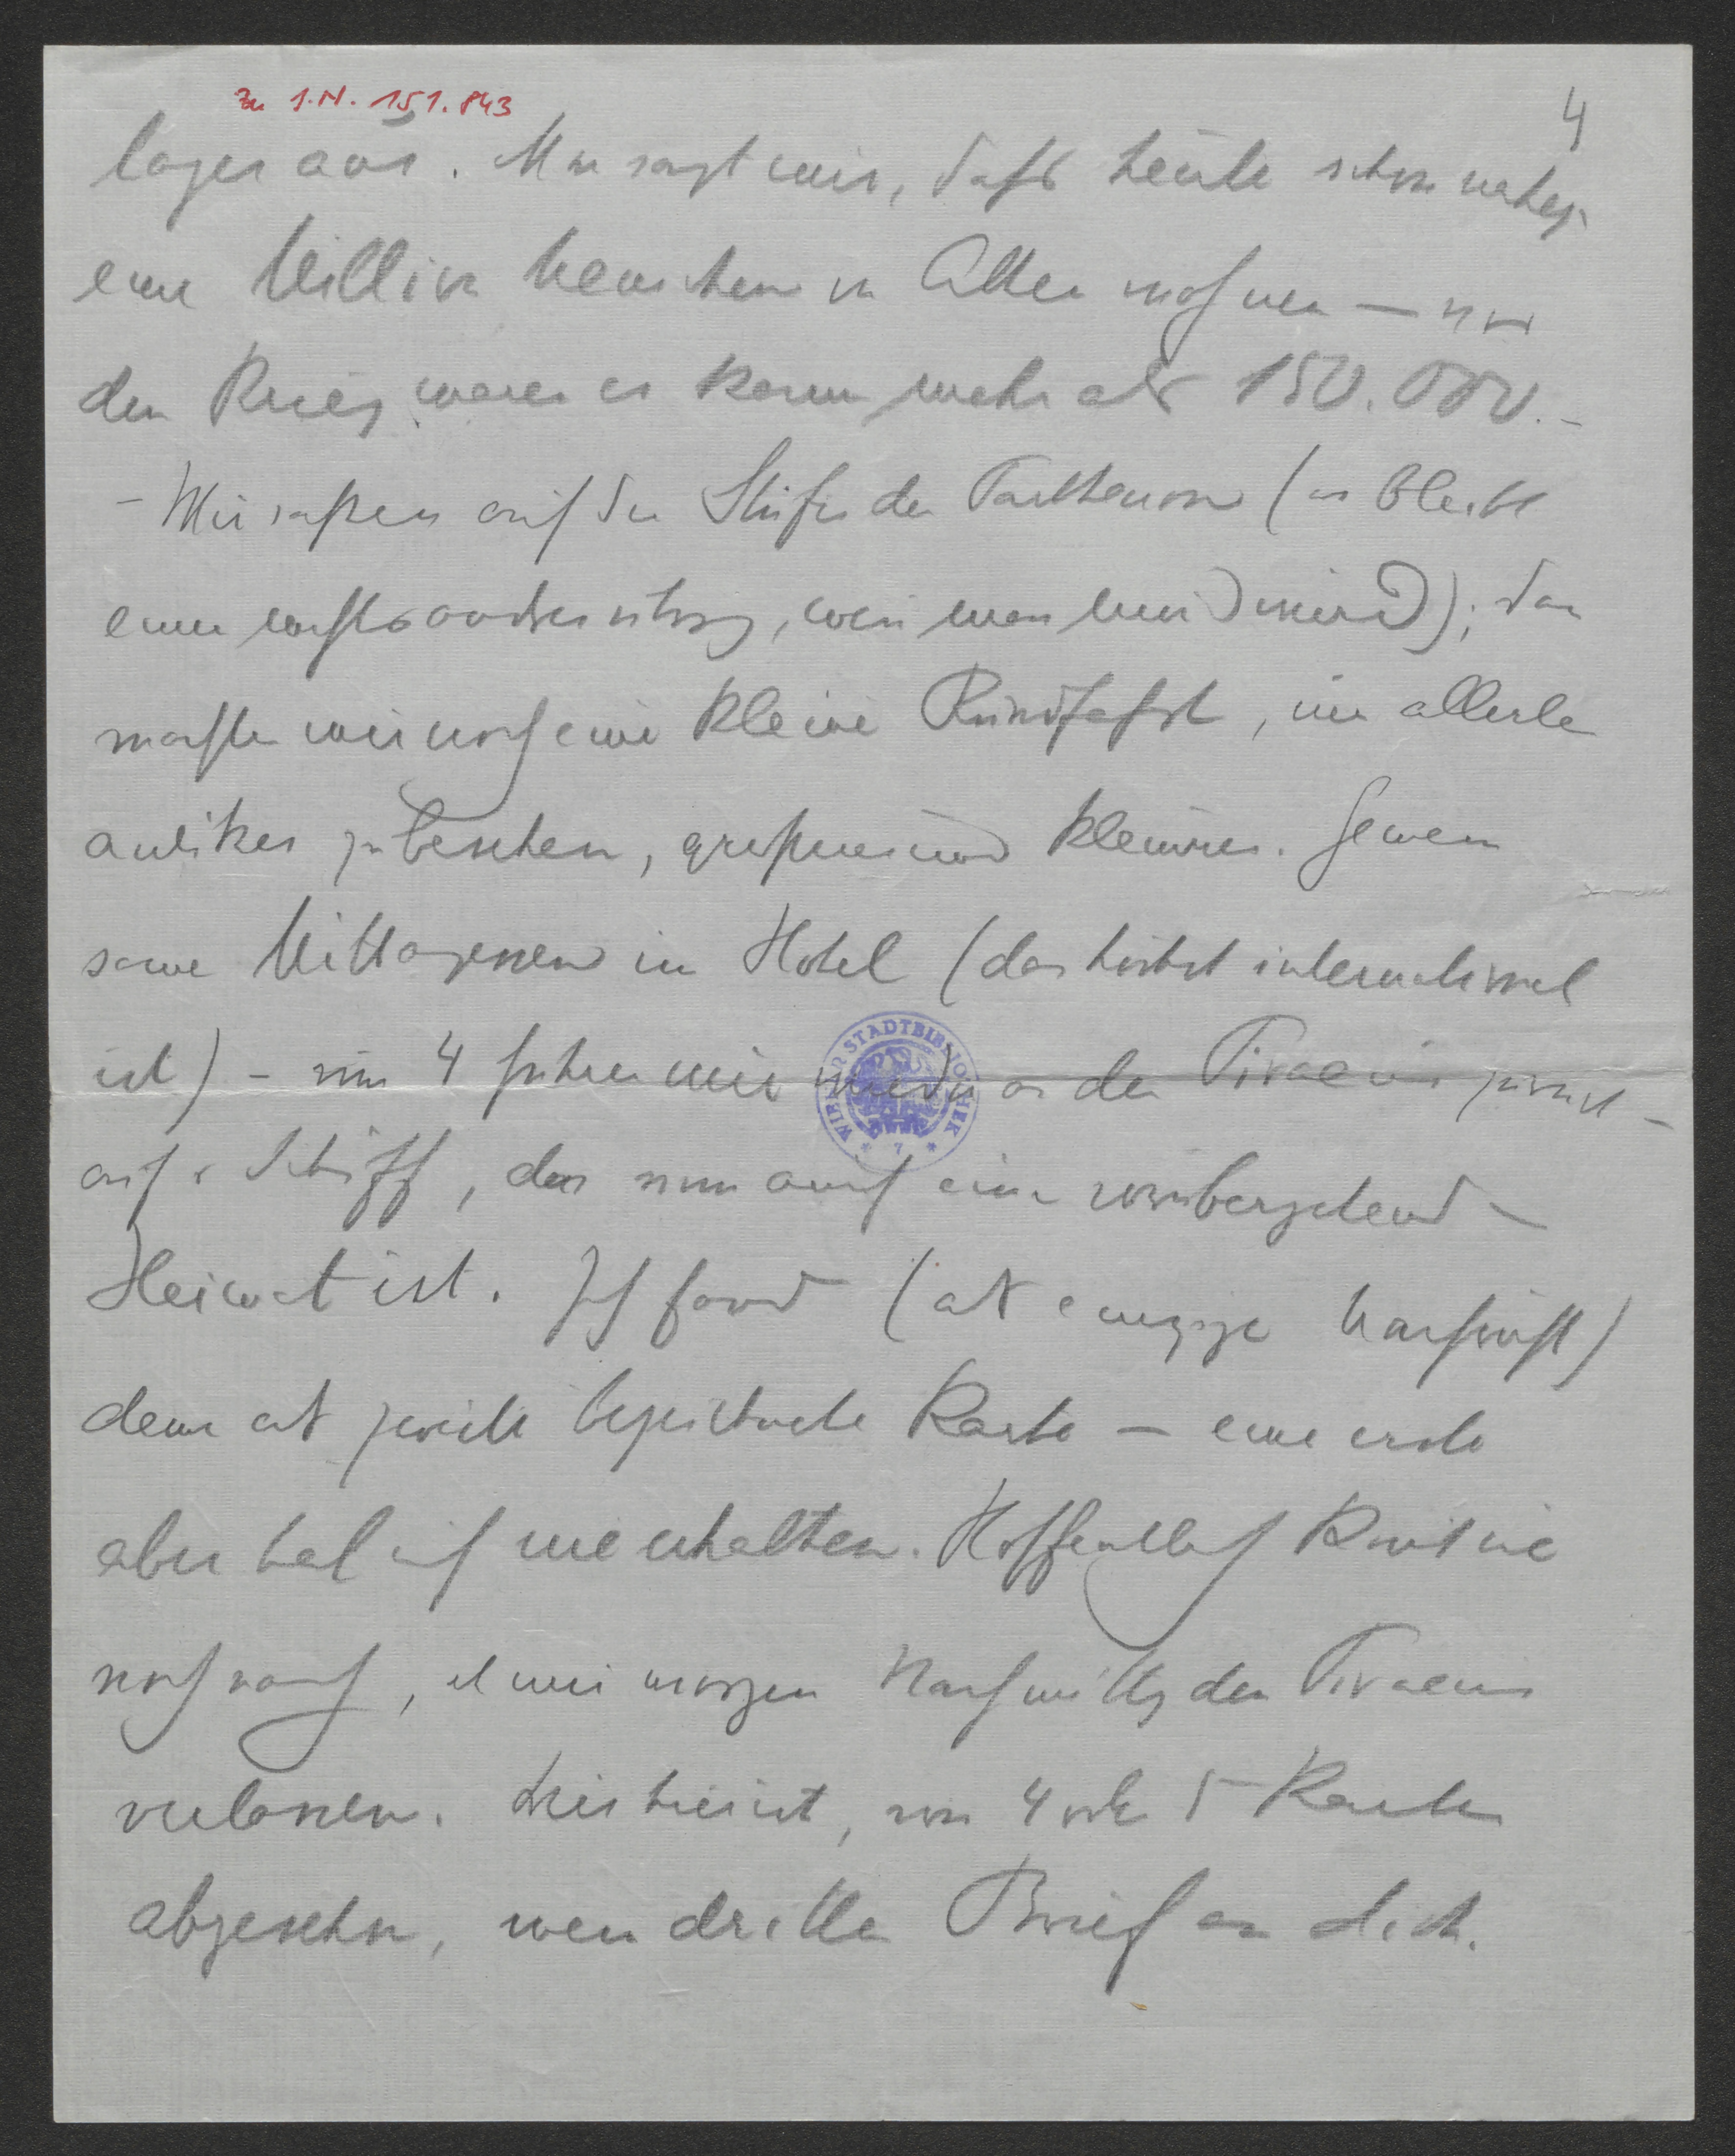 Zu I.N. 151.843
4
lager aus. Man sagt mir, daß heute schon nahezu
eine Million Menschen in Athen wohnen – vor
dem Krieg waren es kaum mehr als 150.000.–
– Wir saßen auf den Stufen des Parthenon (es bleibt
einem nichts anderes übrig, wenn man müd wird); dann
machten wir noch eine kleine Rundfahrt, um allerlei
antikes zu besehen, größeres und kleineres. Gemein
sames Mittagessen im Hotel (das höchst international
ist) – um 4 fuhren wir wieder an den Piraeus zurück –
aufs Schiff, das nun auch eine vorübergehende
Heimat ist. Ich fand (als einzige Nachricht)
deine als zweite bezeichnete Karte – eine erste
aber hab ich nie erhalten. Hoffentlich kommt sie
noch nach, eh wir morgen Nachmittg den Piraeus
verlassen. Dies hier ist, von 4 oder 5 Karten
abgesehn, mein dritter Brief an dich.
WIENER STADTBIBLIOTHEK
* 7 *